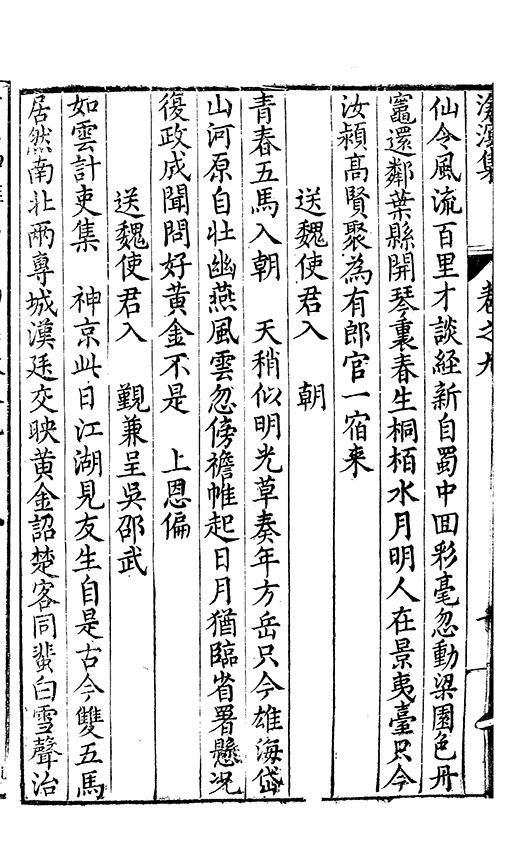 滄溟集　卷之九
仙令風流百里才談経新自蜀中囬彩毫忽動梁園色丹
竈還鄰葉縣開琴裏春生桐栢水月明人在景夷臺只今
汝潁髙賢聚為有郎官一宿来
送魏使君入　朝
青春五馬入朝　天稍似明光草奏年方岳只今雄海岱
山河原自壮幽燕風雲忽傍襜帷起日月猶臨省署懸况
復政成聞問好黄金不是　上恩偏
送魏使君入　覲兼呈吳邵武
如雲計吏集　神京此日江湖見友生自是古今雙五馬
居然南北兩專城漢廷交映黄金詔楚客同蜚白雪聲治